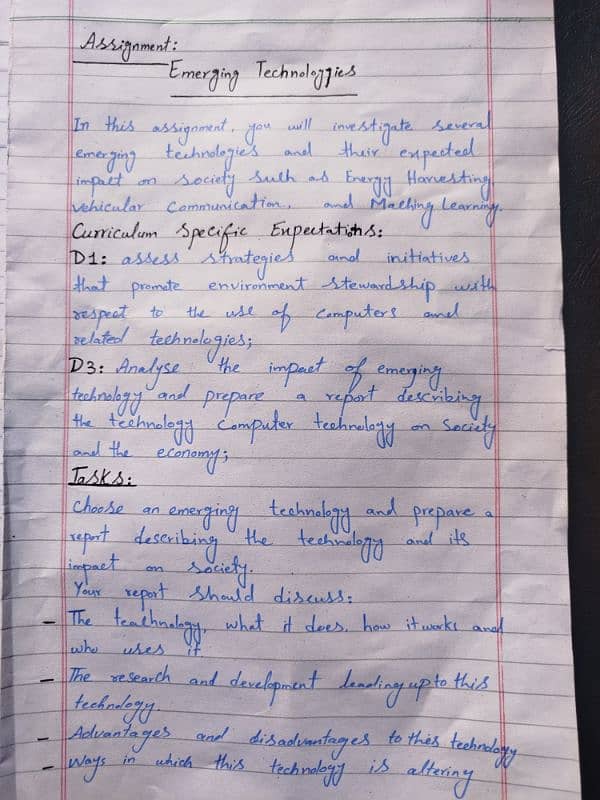 Assignment:
Emerging Technologgies
In this assignment, you will investigate several
emerging technologies and their expected
impact on society such as Energy Harvesting,
vehicular Communication, and Maching Learning.
Curriculum Specific Expectations:
D1: assess strategies and initiatives
that promote environment stewardship with
respect to the use of Computers and
related technologies;
D3: Analyse the impact of emerging
technology and prepare a report describing
the technology Computer technology on Society
and the economy;
Tasks:
Choose an emerging technology and prepare a
report describing the technology and its
impact on society.
Your report should discuss:
– The teachnology, what it does, how it works and
who uses it.
– The research and development leading up to this
technology.
– Advantages and disadvantages to this technology
– Ways in which this technology is altering